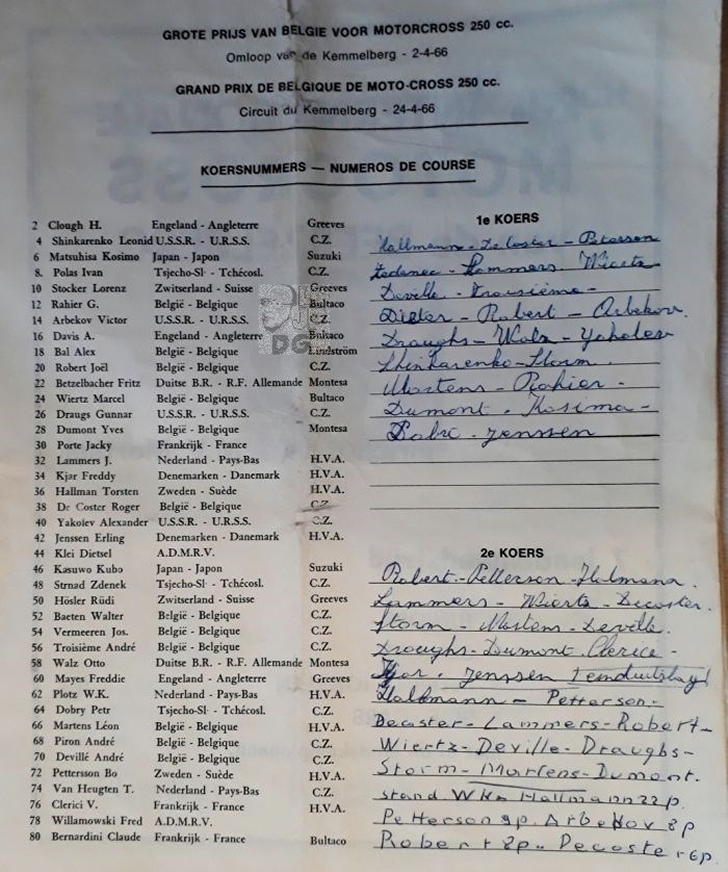 GROTE PRIJS VAN BELGIE VOOR MOTORCROSS 250 cc.
Omloop van de Kemmelberg - 2-4-66
GRAND PRIX DE BELGIQUE DE MOTO-CROSS 250 cc.
Circuit du Kemmelberg - 24-4-66
KOERSNUMMERS — NUMEROS DE COURSE
2 Clough H. Engeland - Angleterre Greeves
4 Shinkarenko Leonid U.S.S.R. - U.R.S.S. C.Z.
6 Matsuhisa Kosimo Japan - Japon Suzuki
8. Polas Ivan Tsjecho-Sl· - Tchécosl. C.Z.
10 Stocker Lorenz Zwitserland - Suisse Greeves
12 Rahier G. België - Belgique Bultaco
14 Arbekov Victor U.S.S.R. - U.R.S.S. C.Z.
16 Davis A. Engeland - Angleterre Bultaco
18 Bal Alex België - Belgique Lindström
20 Robert Joël België - Belgique C.Z.
22 Betzelbacher Fritz Duitse B.R. - R.F. Allemande Montesa
24 Wiertz Marcel België - Belgique Bultaco
26 Draugs Gunnar U.S.S.R. - U.R.S.S. C.Z.
28 Dumont Yves België - Belgique Montesa
30 Porte Jacky Frankrijk - France
32 Lammers J. Nederland - Pays-Bas H.V.A.
34 Kjar Freddy Denemarken - Danemark H.V.A.
36 Hallman Torsten Zweden - Suède H.V.A.
38 De Coster Roger België - Belgique C.Z.
40 Yakolev Alexander U.S.S.R. - U.R.S.S. C.Z.
42 Jenssen Erling Denemarken - Danemark H.V.A.
44 Klei Dietsel A.D.M.R.V.
46 Kasuwo Kubo Japan - Japon Suzuki
48 Strnad Zdenek Tsjecho-Sl· - Tchécosl. C.Z.
50 Hösler Rüdi Zwitserland - Suisse Greeves
52 Baeten Walter België - Belgique C.Z.
54 Vermeeren Jos. België - Belgique C.Z.
56 Troisième André België - Belgique C.Z.
58 Walz Otto Duitse B.R. - R.F. Allemande Montesa
60 Mayes Freddie Engeland - Angleterre Greeves
62 Plotz W.K. Nederland - Pays-Bas H.V.A.
64 Dobry Petr Tsjecho-Sl· - Tchécosl. C.Z.
66 Martens Léon België - Belgique H.V.A.
68 Piron André België - Belgique C.Z.
70 Devillé André België - Belgique C.Z.
72 Pettersson Bo Zweden - Suède H.V.A.
74 Van Heugten T. Nederland - Pays-Bas C.Z.
76 Clerici V. Frankrijk - France H.V.A.
78 Willamowski Fred A.D.M.R.V.
80 Bernardini Claude Frankrijk - France Bultaco
1e KOERS
Hallmann - Decoster - Peterson
Lammers. Wierts
Deville - Troisième -
Robert - Arbekov.
Draughs - Walz - Yakolev
Shinkarenko - Storm
Mastens - Rahier -
Dumont. Kosima -
Jenssen
2e KOERS
Robert - Petterson - Halmann.
Lammers - Wierts - Decoster.
Storm - Mastens - Deville.
Draughs - Dumont. Clerice -
Kjar. Jenssen Einduitslag
Hallmann - Petterson -
Decoster - Lammers - Robert -
Wiertz - Deville - Draughs -
Storm - Martens - Dumont.
stand WK Hallmann 22 p.
Petterson 9 p. Arbekov 8 p
Robert 8p.. Decoster 6p.
DG